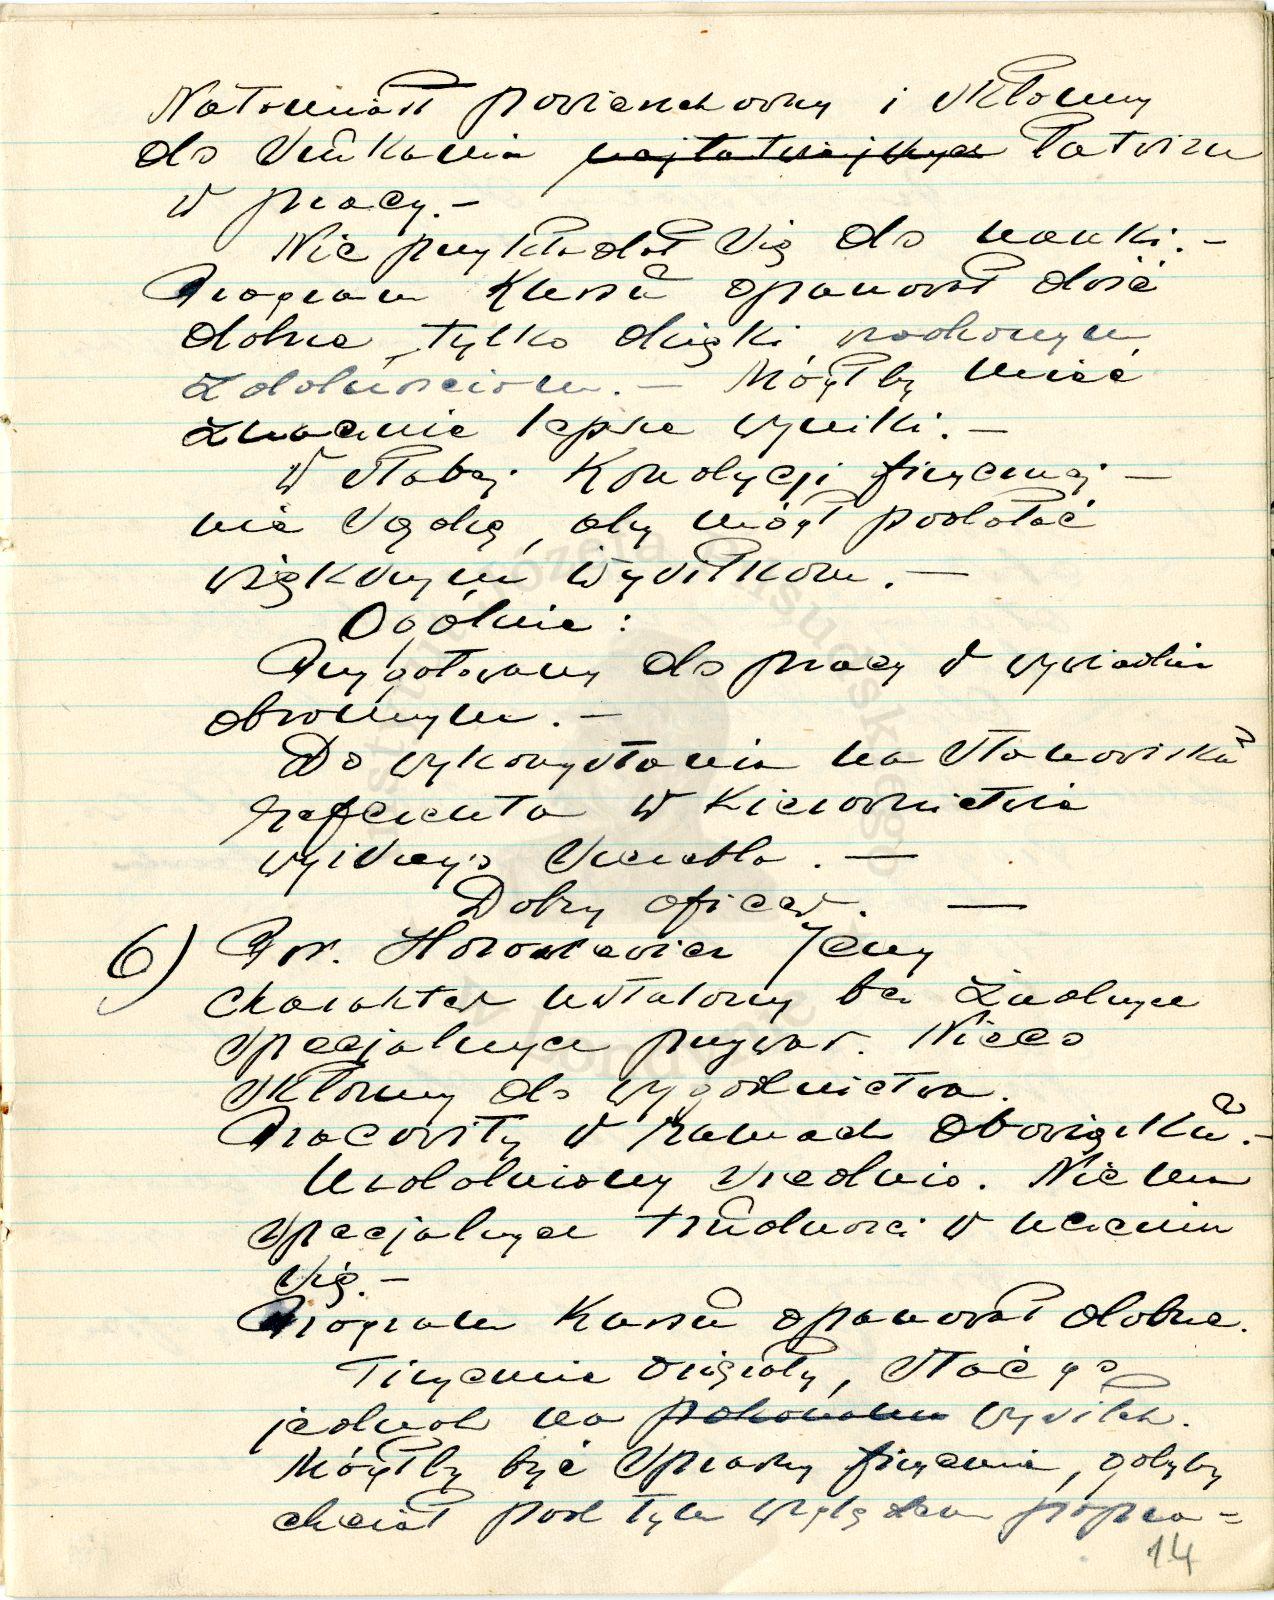 Natomiast powierzchowny i skłonny
do szukania najłatwiejszych łatwizn
w pracy.-
Nie przykładał się do nauki.-
Program kursu opanował dość
dobrze, tylko dzięki wrodzonym
zdolnościom. - Mógłby mieć
znacznie lepsze wyniki.-
W słabej kondycji fizycznej -
nie sądzę, aby mógł podołać
większym wysiłkom.-
Ogólnie:
Przygotowany do pracy w wywiadzie
obronnym.-
Do wykorzystania na stanowisku
referenta w kierownictwie
wyższego szczebla.-
Dobry oficer. -
6) Por. Jerzy
charakter ustalony bez żadnych
specjalnych przywar. Nieco
skłonny do wygodnictwa.
Pracowity w ramach obowiązku.-
Uzdolniony średnio. Nie ma
specjalnych trudności w uczeniu
się.-
Program kursu opanował dobrze.
Fizycznie ociężały, stać go
jednak na pokonanie wysiłek.
Mógłby być sprawny fizycznie, gdyby
chciał pod tym względem popra=
14
Józefa Piłsudskiego